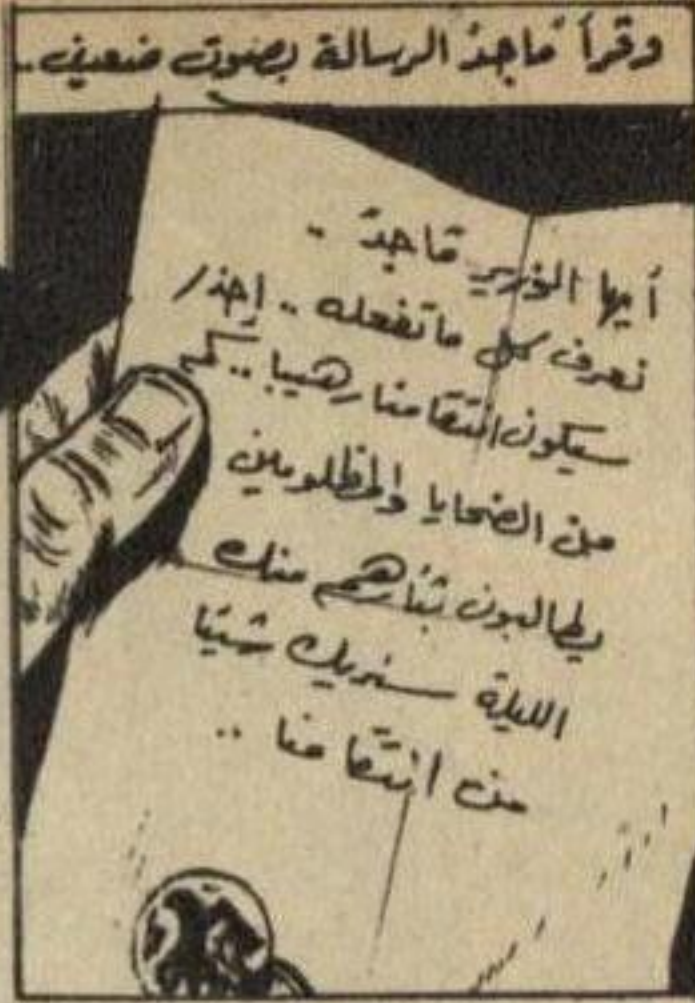 وقرأ ماجد الرسالة بصوت ضعيف ..
أيها الوزير ماجد ..
نعرف كل ما تفعله .. إحذر
سيكون انتقامنا رهيبا .. كم
من الضحايا والمظلومين
يطالبون بثأرهم منك
الليلة سنريك شيئا
من انتقامنا ..